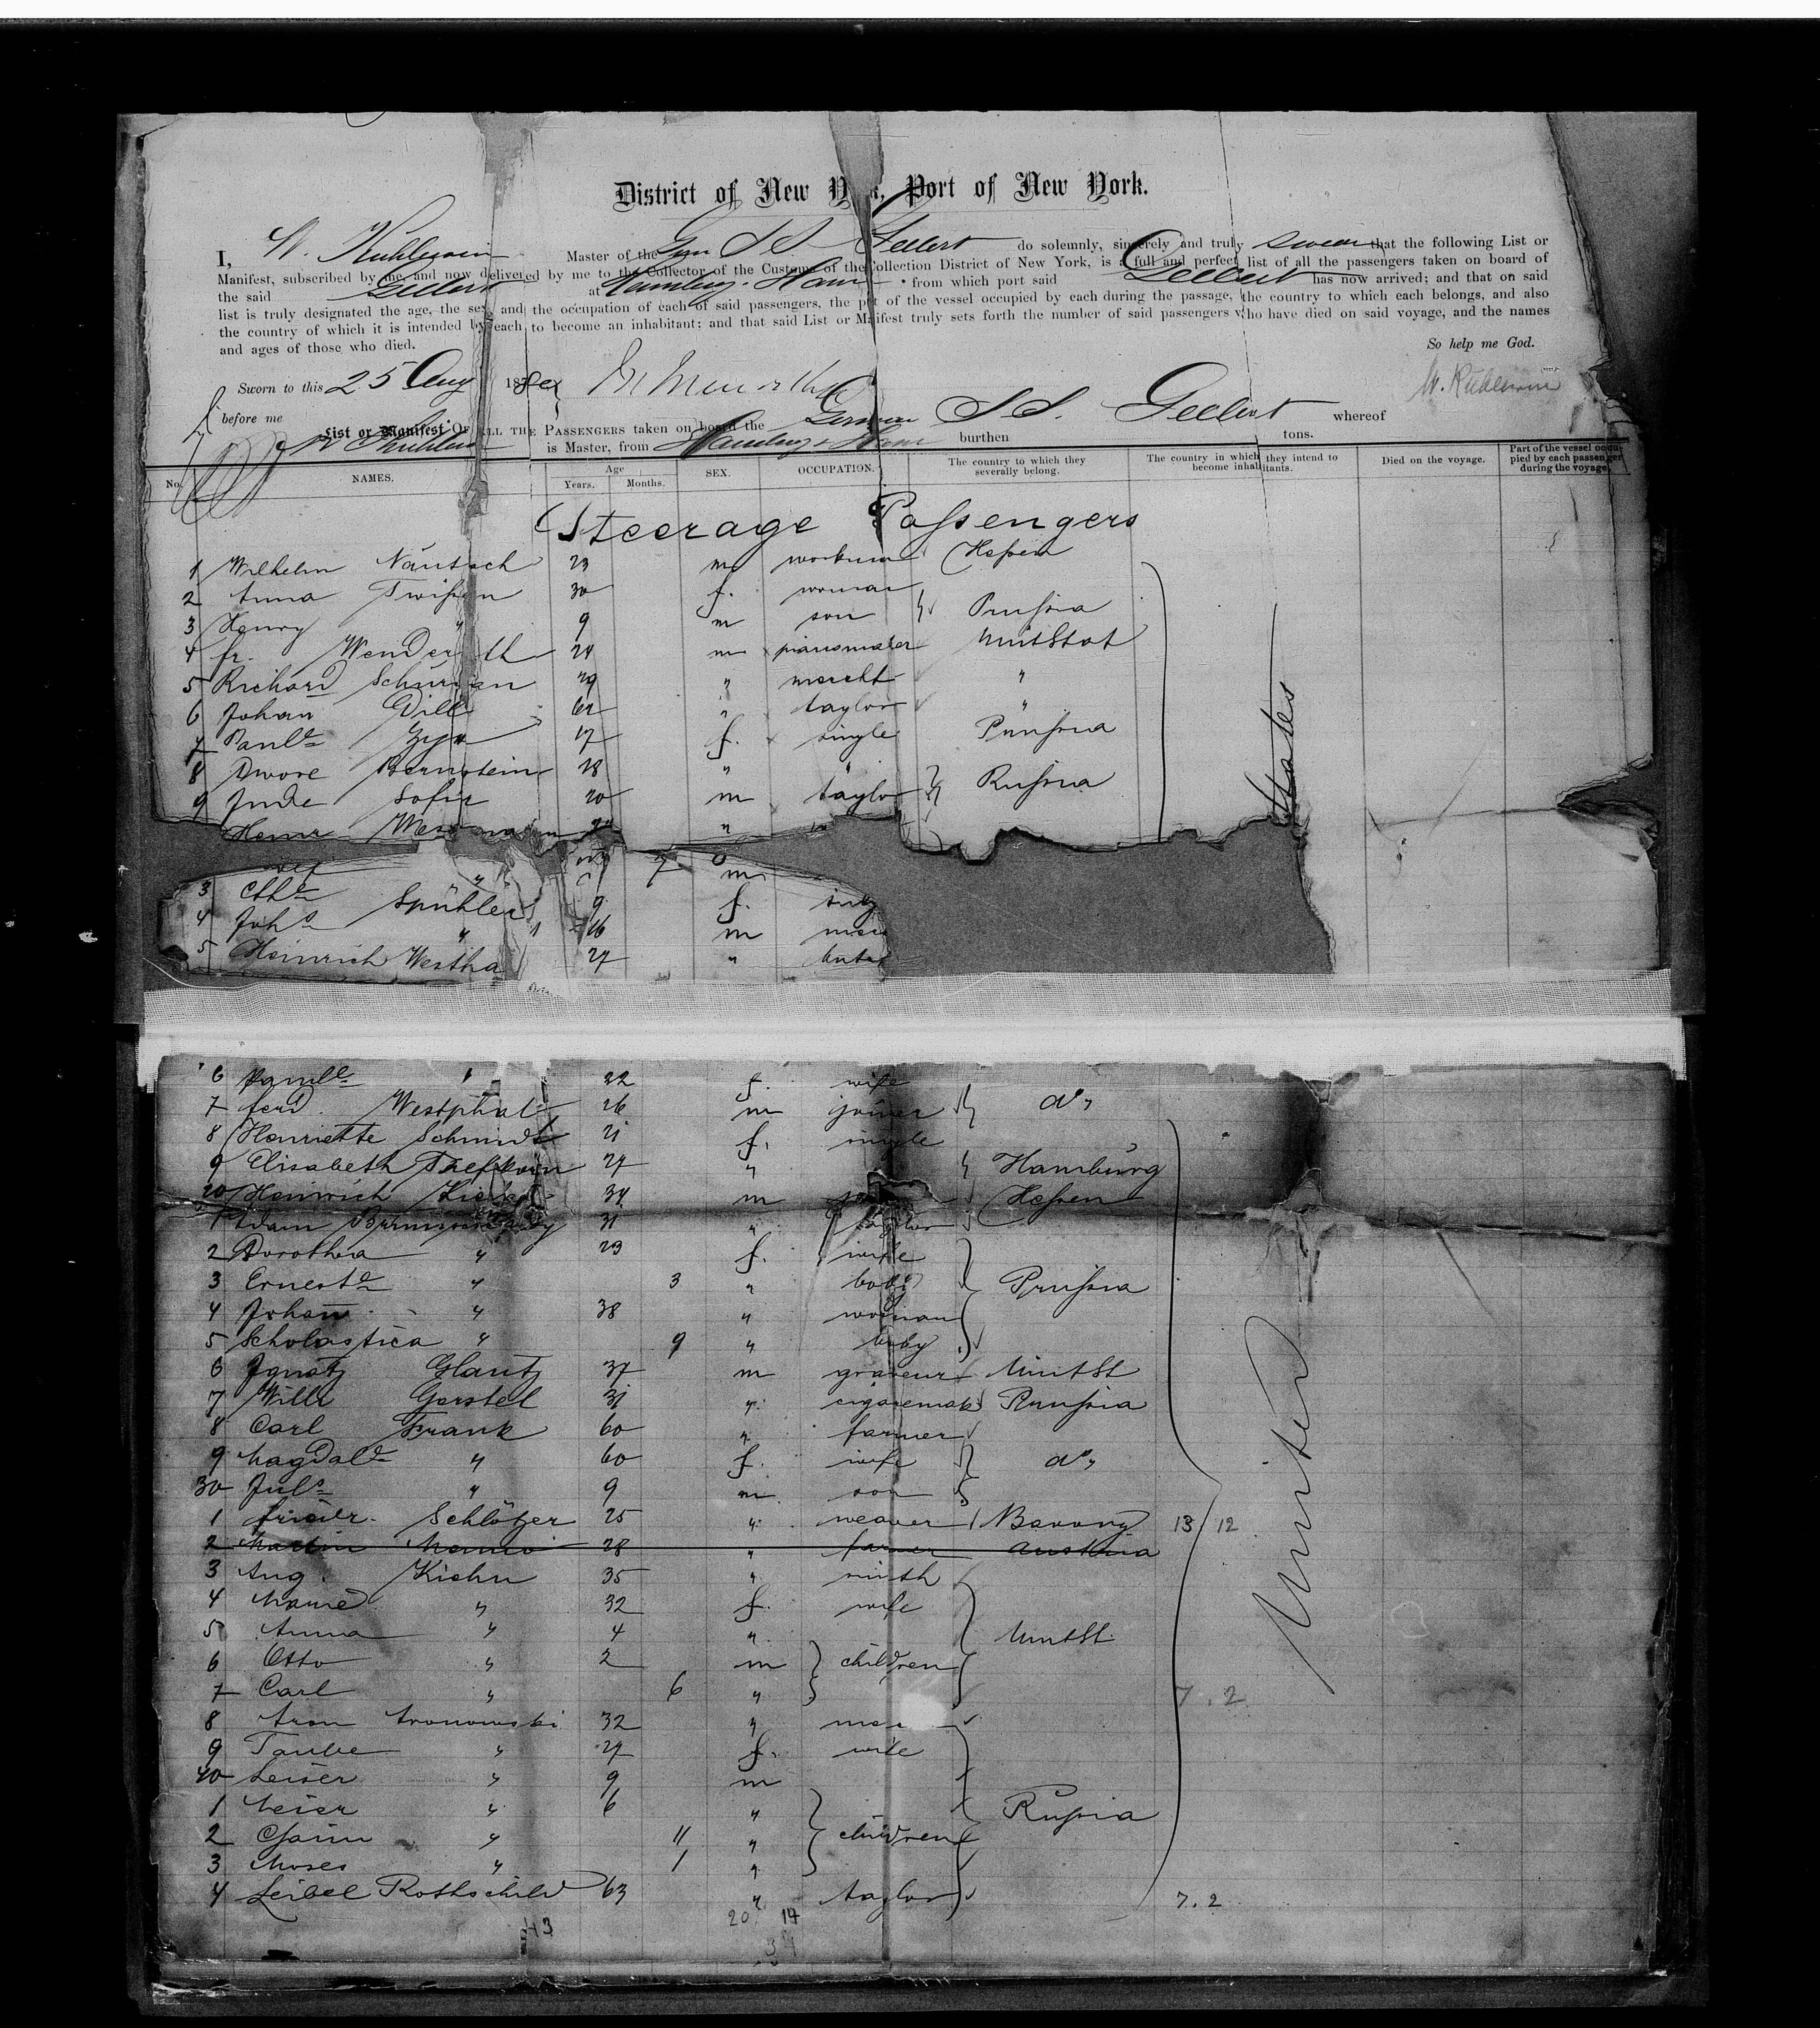 District of New York, Port of New York.
I, W. Kuhlewein Master of the Gm SS Gellert do solemnly, sincerely and truly swear that the following List or
Manifest, subscribed by me and now delivered by me to the Collector of the Customs of the Collection District of New York, is a full and perfect list of all the passengers taken on board of
the said Gellert at Hamburg. Havre from which port said Gellert has now arrived; and that on said
list is truly designated the age, the sex, and the occupation of each of said passengers, the part of the vessel occupied by each during the passage, the country to which each belongs, and also
the country of which it is intended by each to become an inhabitant; and that said List or Manifest truly sets forth the number of said passengers who have died on said voyage, and the names
and ages of those who died.
So help me God.
Sworn to this 25 Aug 18
W. Kuhlewein
before me
List or Manifest OF ALL THE PASSENGERS taken on board the German S.S. Gellert whereof
is Master, from Hamburg & Havre burthen tons.
No. NAMES. Age Years. Months. SEX. OCCUPATION. The country to which they severally belong. The country in which they intend to become inhabitants. Died on the voyage. Part of the vessel occupied by each passenger during the voyage.
Steerage Passengers
1 Wilhelm 23 m Hessen
2 Anna 30 f. woman
3 Henry " 9 m son Prussia
4 fr. Wenderoth 24 m pianomaker UnitStat
5 Richard Schurman 29 " mercht "
6 Johan Dill 62 " taylor "
7 Paule 17 f. single Prussia
8 Dwore Bernstein 18 " "
9 Jude Sofir 20 m taylor Russia
" 7 m
3 Cthe Spühler 9 f.
4 Johs " 16 m
5 Heinrich Westpha 27 "
6 " 22 f. wife
7 ferd. Westphal 26 m joiner do,
8 Henriette Schmidt 21 f. single
9 Elisabeth 27 " Hamburg
20 Heinrich 34 m Hessen
1 Adam 31 " taylor
2 Dorothea " 29 f. wife
3 Erneste " 3 " baby Prussia
4 Johan " 38 " woman
5 Scholastica " 9 " baby
6 Ignatz Glantz 37 m graveur UnitSt
7 Willi Gerstel 31 " cigaremak Prussia
8 Carl Frank 60 " farmer
9 Magdale " 60 f. wife do,
30 Juls " 9 m son
1 Schlötzer 25 " weaver 13 / 12
2 Martin 28 " farmer Austria
3 Aug. Kiehn 35 " smith
4 Marie " 32 f. wife
5 Anna " 4 " UnitSt.
6 Otto " 2 m children
7 Carl " 6 " 7.2
8 Aron Aronowski 32 "
9 Taube " 27 f. wife
40 Leiser " 9 m
1 Meier " 6 " Russia
2 Chaim " 11 " children
3 Moses " 1 "
4 Leibel Rothschild 63 " taylor 7.2
United States
43 20 14
34